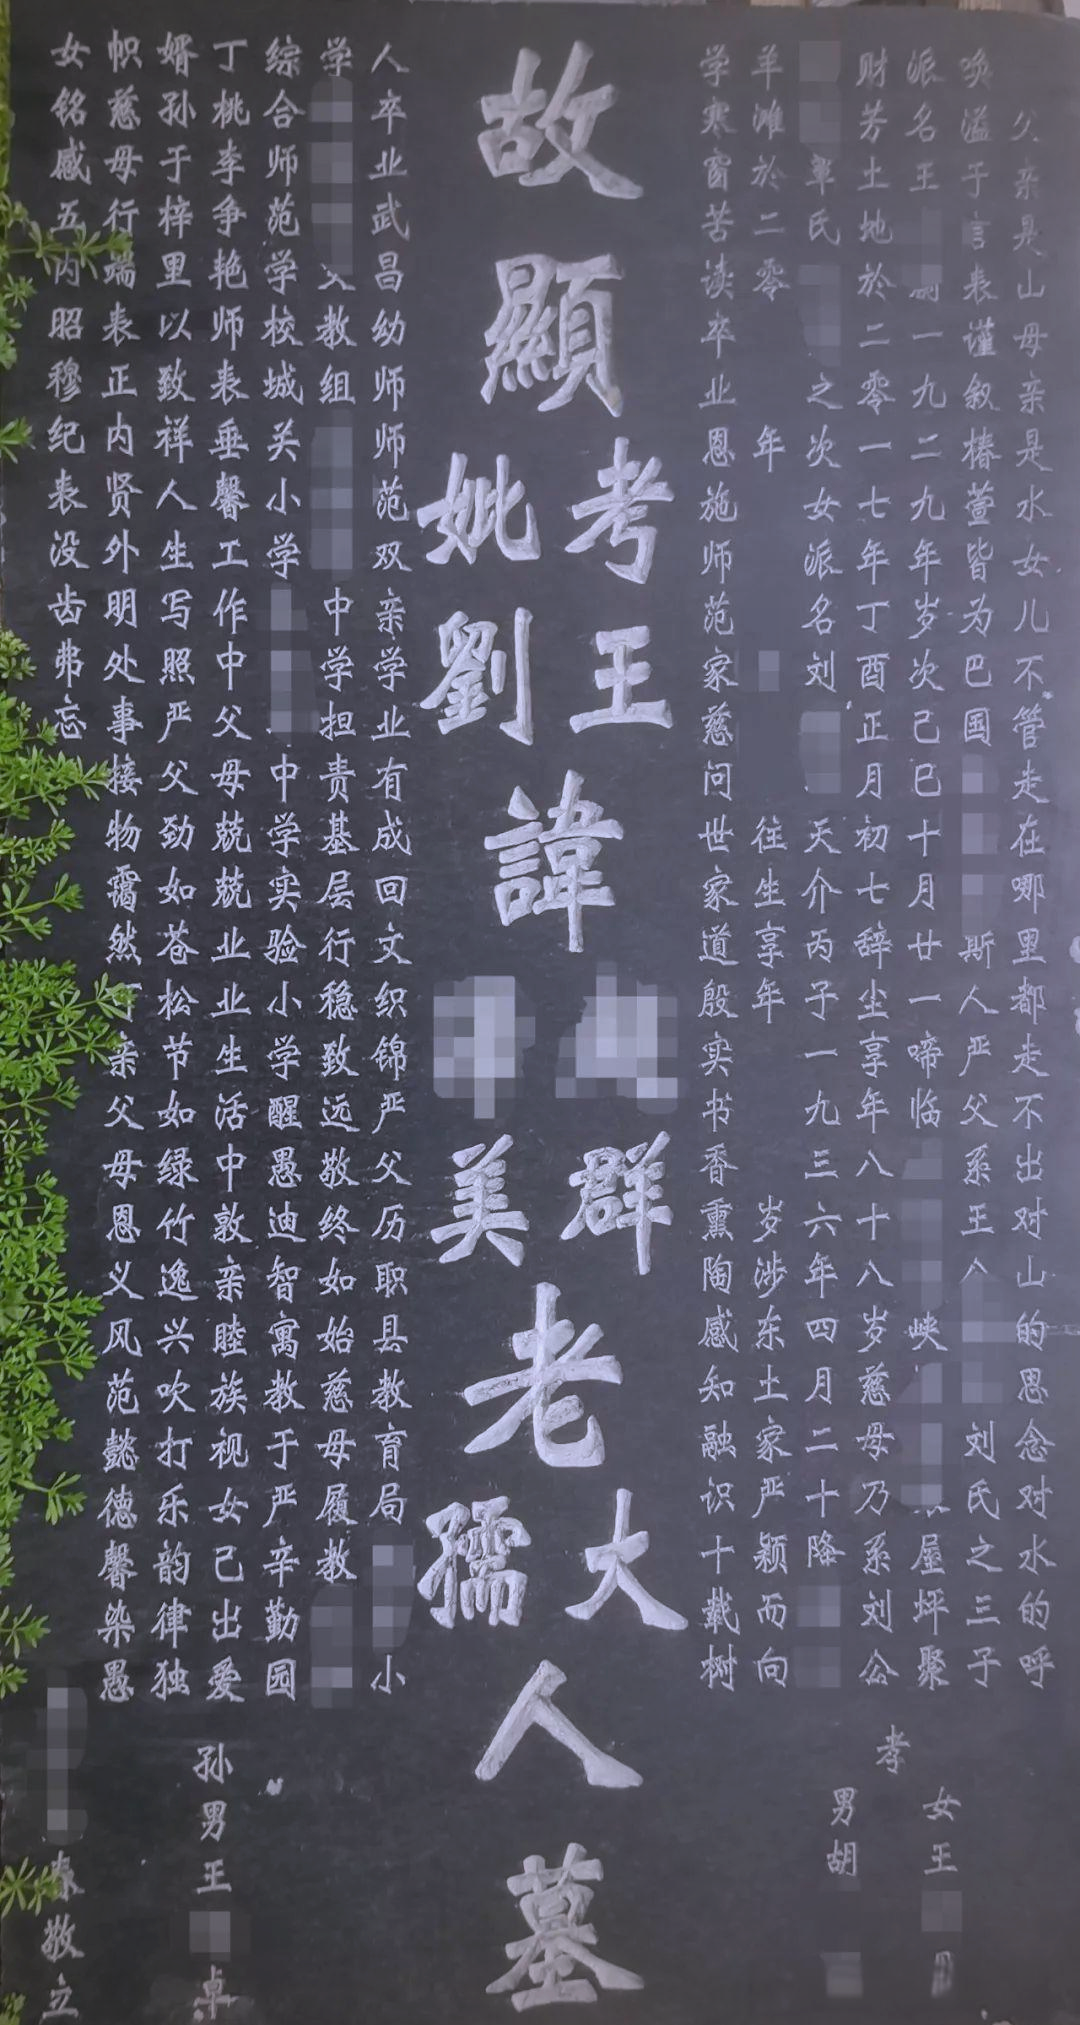 父亲是山母亲是水女儿不管走在哪里都走不出对山的思念对水的呼
唤溢于言表谨叙椿萱皆为巴国斯人严父系王公刘氏之三子
派名王一九二九年岁次己巳十月廿一啼临峡屋坪聚
财芳土地於二零一七年丁酉正月初七辞尘享年八十八岁慈母乃系刘公
覃氏之次女派名刘天介丙子一九三六年四月二十降
羊滩於二零年往生享年岁涉东土家严颖而向
学寒窗苦读卒业恩施师范家慈问世家道殷实书香熏陶感知融识十载树
故顯考王諱群老大人墓
妣劉美孺
人卒业武昌幼师师范双亲学业有成回文织锦严父历职县教育局小
学教组中学担责基层行稳致远敬终如始慈母履教
综合师范学校城关小学中学实验小学醒愚迪智寓教于严辛勤园
丁桃李争艳师表垂馨工作中父母兢兢业业生活中敦亲睦族视女已出爱
婿孙于梓里以致祥人生写照严父劲如苍松节如绿竹逸兴吹打乐韵律独
帜慈母行端表正内贤外明处事接物霭然可亲父母恩义风范懿德馨染愚
女铭感五内昭穆纪表没齿弗忘
孝
女王
男胡
孙男王卓
敬立